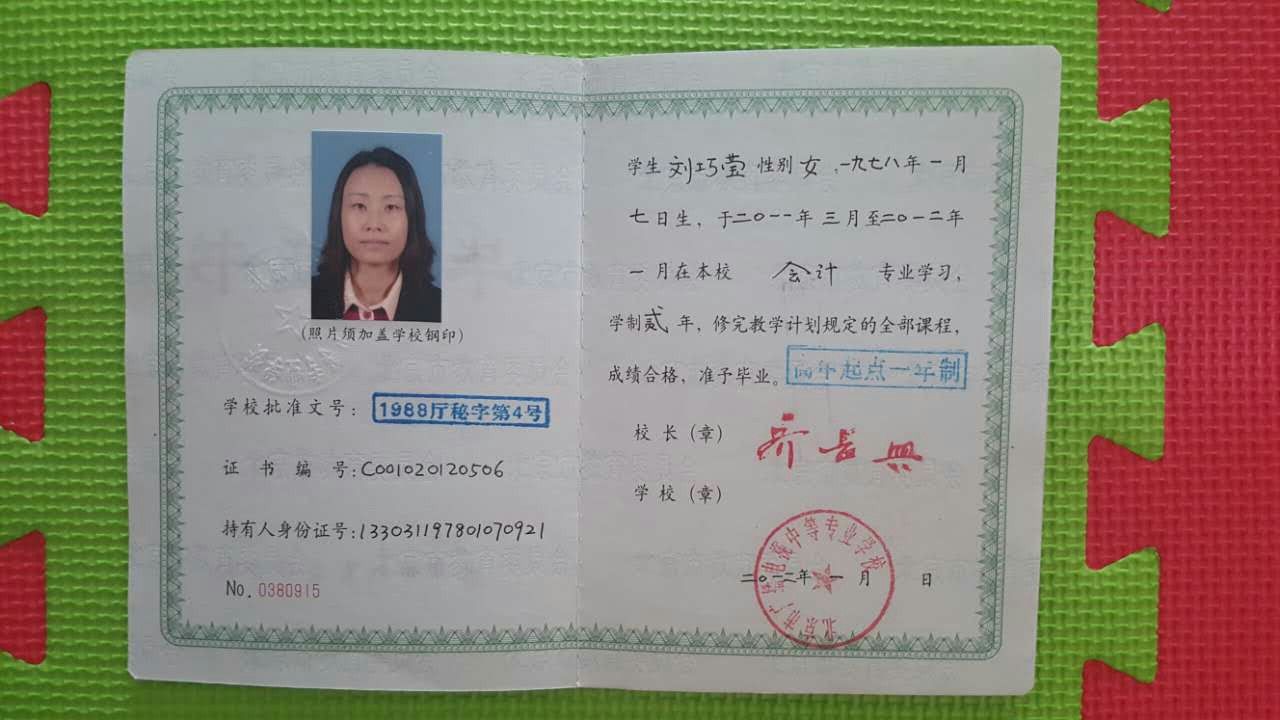 (照片须加盖学校钢印)
学校批准文号：1988厅秘字第4号
证书编号:C001020120506
持有人身份证号:133031197801070921
No.0380915
学生刘巧莹性别女，一九七八年一月
七日生，于二〇一一年三月至二〇一二年
一月在本校会计专业学习，
学制贰年，修完教学计划规定的全部课程，
成绩合格，准予毕业。高中起点一年制
校长(章)
齐长兴
学校(章)
北京市广播电视中等专业学校
二〇一二年一月 日